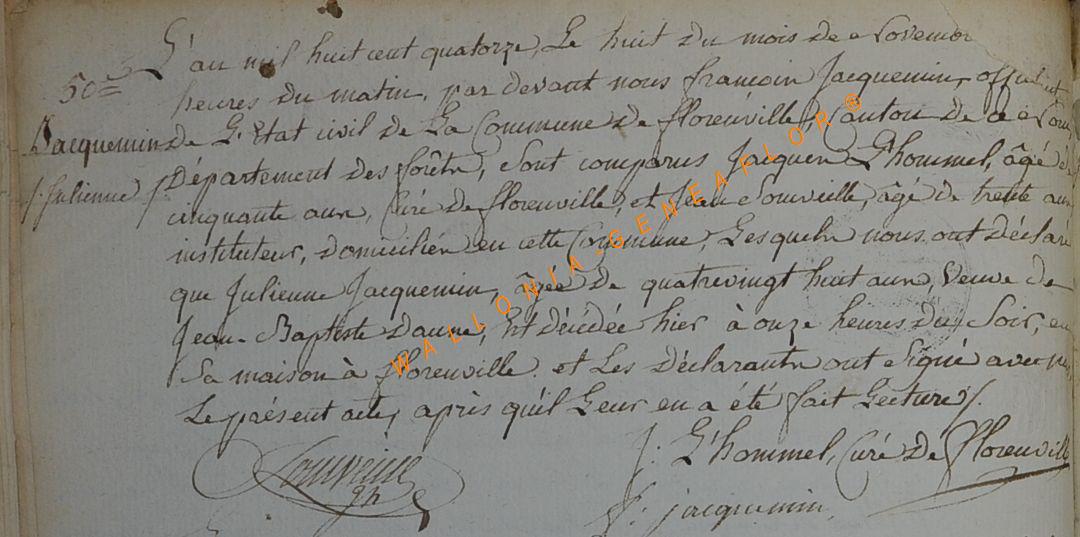 50e
Jacquemin
Julienne
L'an mil huit cent quatorze, Le huit du mois de Novembr
heures du matin, par devant nous françois Jacquemin, officier
de L'Etat civil de La Commune de florenville, Canton de
Département des forêts, sont comparus Jacques L'hommel, âgé de
cinquante ans, Curé de florenville, et Jean Souveille, âgé de trente ans
instituteur, domiciliés en cette Commune, Lesquels nous ont déclaré
que Julienne Jacquemin, âgée de quatrevingt huit ans, Veuve de
Jean-Baptiste dauve, Est décédée hier à onze heures du Soir, en
Sa maison à florenville, et Les Déclarants ont Signé avec nous
Le présent acte, après qu'il Leur en a été fait Lecture /.
J: L'hommel, Curé De florenville
f: jacquemin
WALLONIA-GENEAFLOR®